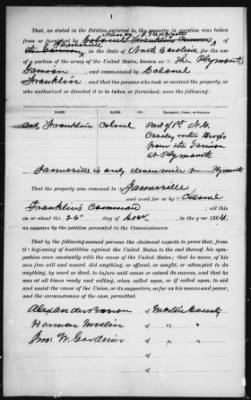 That, as stated in the Petition referred to, the property in question was taken
from or furnished by Colonel Franklin
of Jamesville, in the State of North Carolina, for the use
of a portion of the army of the United States, known as The Plymouth
, and commanded by Colonel
Franklin, and that the persons who took or received the property, or
who authorized or directed it to be taken or furnished, were the following:
NAME. RANK. CO. REGIMENT, CORPS, OR STATION.
Col Franklin Colonel Part of 1st N.C.
Troops
from the
at Plymouth
Jamesville is only eleven miles Plymouth
That the property was removed to Jamesville
and used for or by Colonel
Franklin's Command; all this
on or about the 26" day of Nov, in the year 1864,
as appears by the petition presented to the Commissioners.
That by the following-named persons the claimant expects to prove that, from
the beginning of hostilities against the United States to the end thereof, his sym-
pathies were constantly with the cause of the United States; that he never, of his
own free will and accord, did anything, or offered, or sought, or attempted to do
anything, by word or deed, to injure said cause or retard its success, and that he
was at all times ready and willing, when called upon, or if called upon, to aid
and assist the cause of the Union, or its supporters, so far as his means and power,
and the circumstances of the case, permitted.
Alexander of Martin County
of " "
Jno. W. Gardner of " "
of
of
of